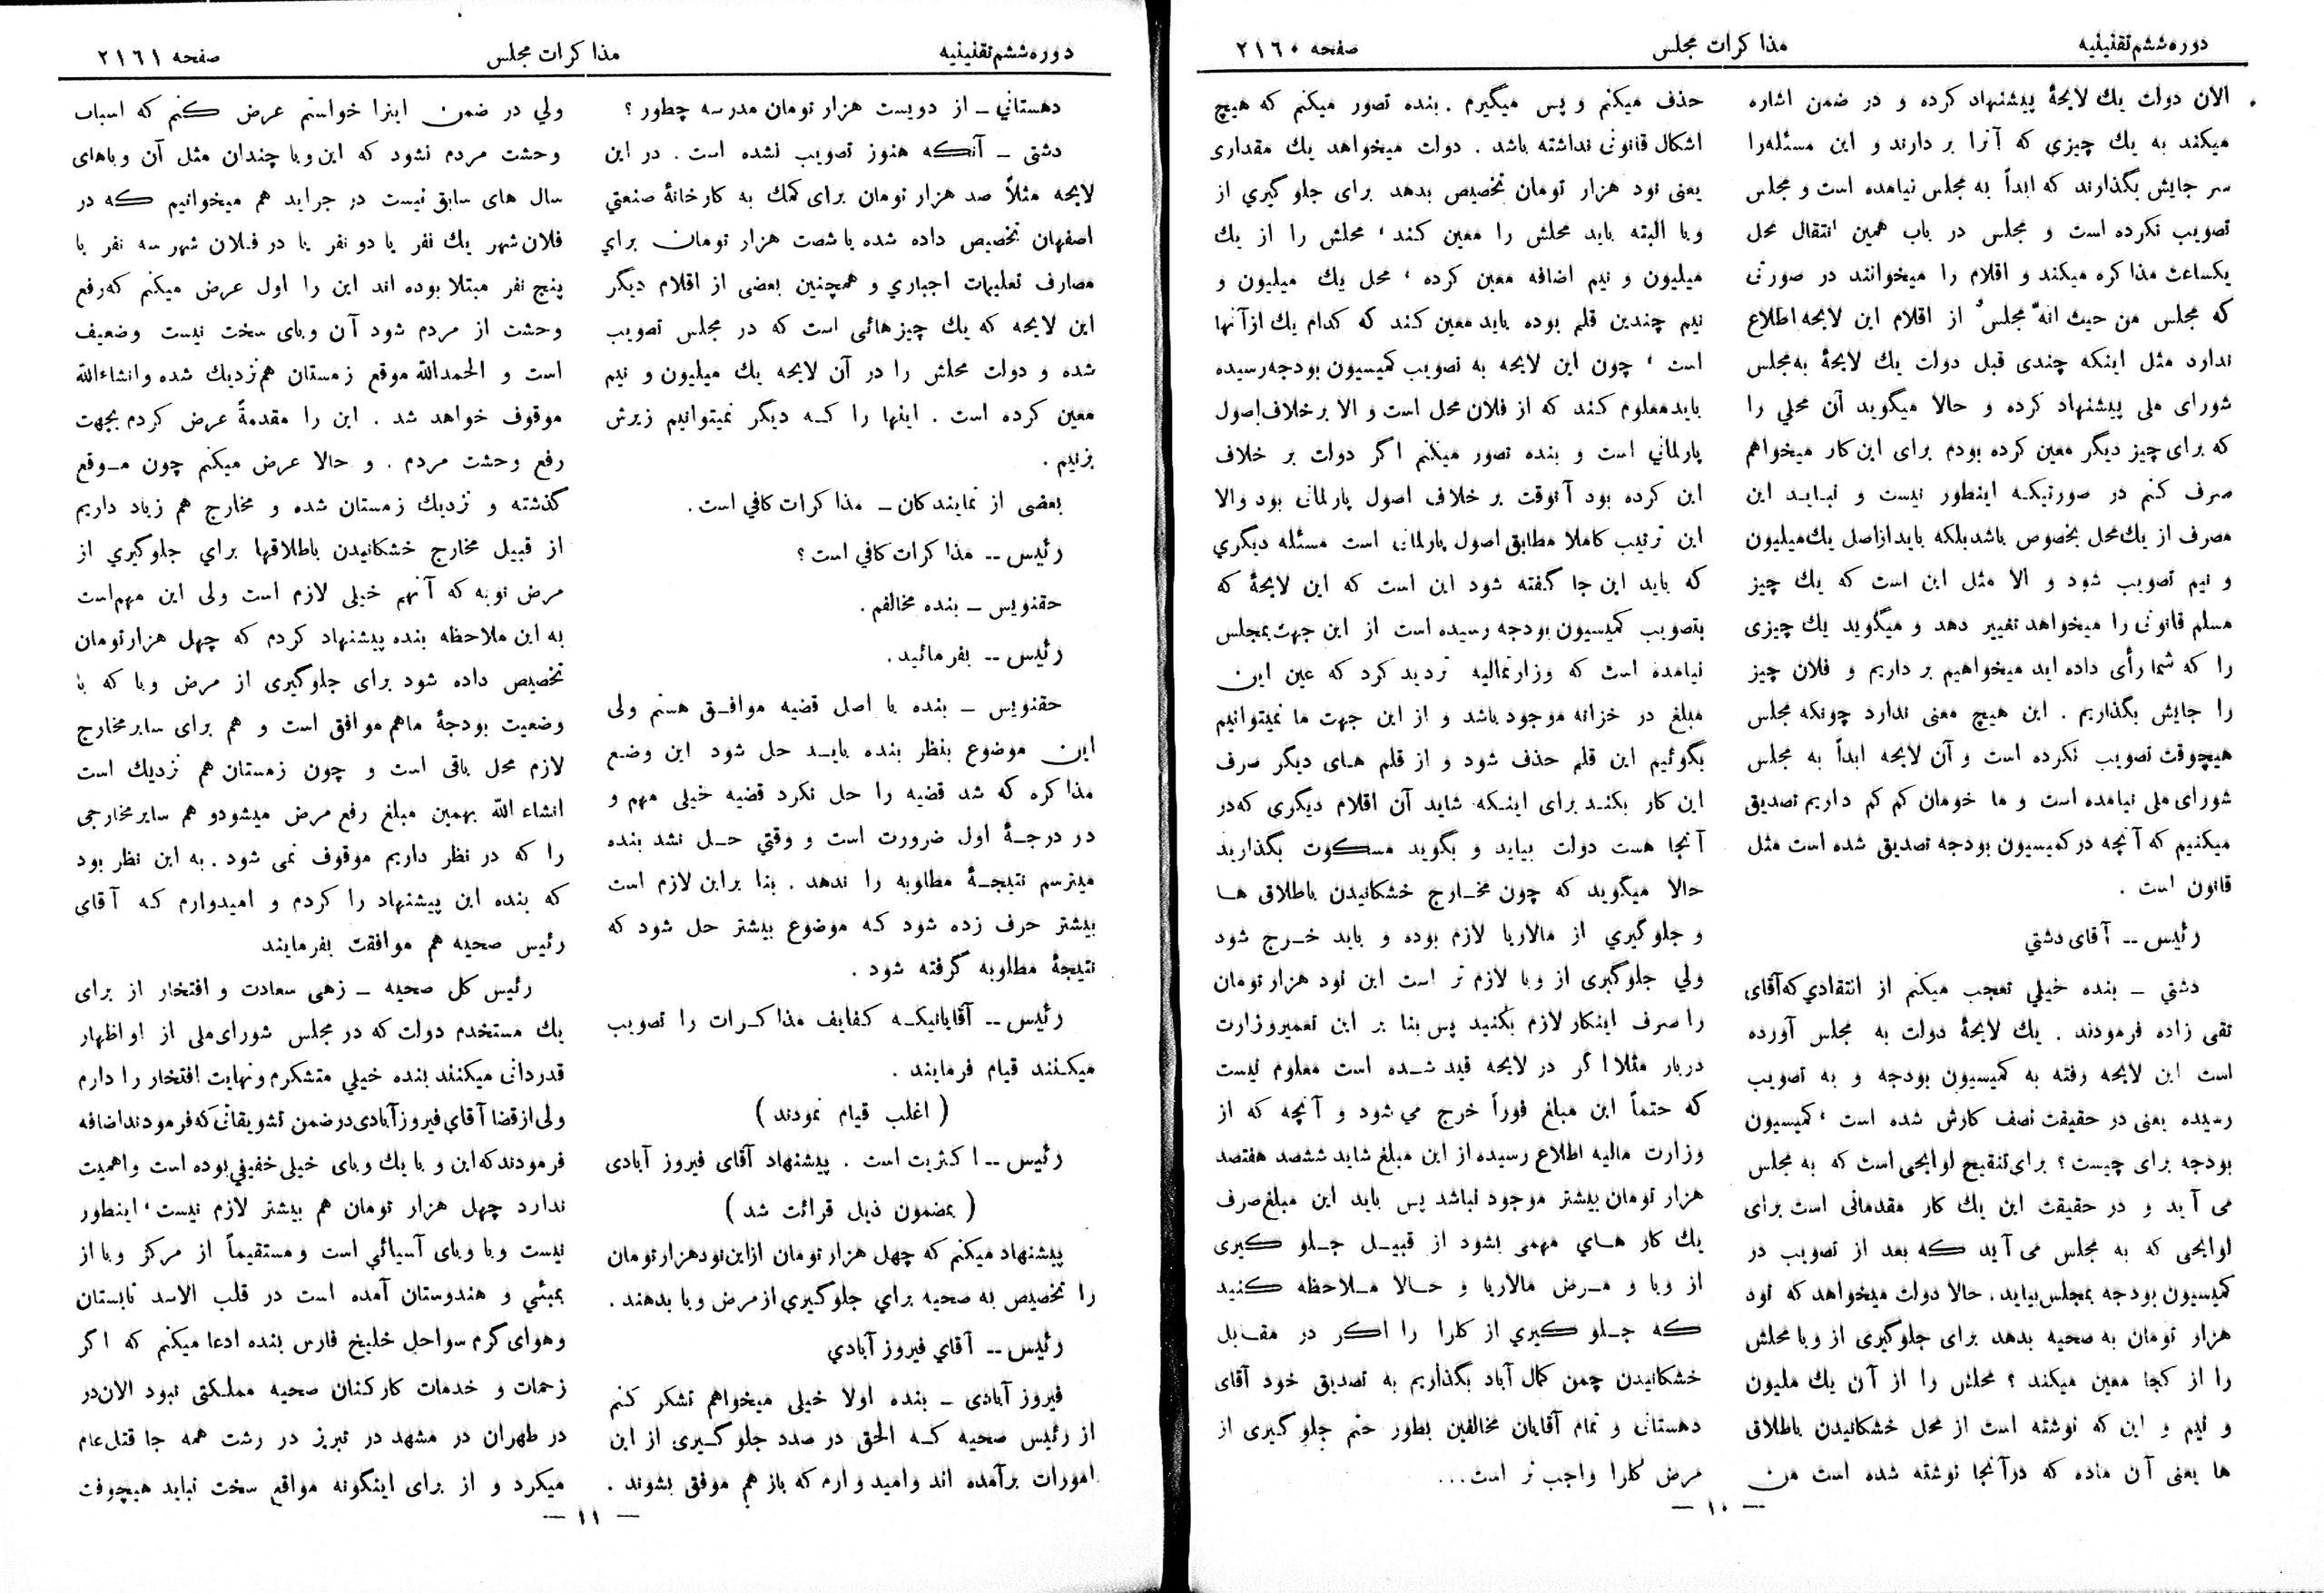 دوره ششم تقنینیه
مذاکرات مجلس
صفحه ۲۱٦۰
الان دولت یك لایحهٔ پیشنهاد کرده و در ضمن اشاره
میکند به یك چیزی که آنرا بر دارند و این مسئله را
سر جایش بگذارند که ابداً به مجلس نیامده است و مجلس
تصویب نکرده است و مجلس در باب همین انتقال محل
یکساعت مذاکره میکند و اقلام را میخوانند در صورتی
که مجلس من حیث انهّ مجلسٌ از اقلام این لایحه اطلاع
ندارد مثل اینکه چندی قبل دولت یك لایحهٔ به مجلس
شورای ملی پیشنهاد کرده و حالا میگوید آن محلي را
که برای چیز دیگر معین کرده بودم برای این کار میخواهم
صرف کنم در صورتیکـه اینطور نیست و نبـایـد این
مصرف از یك محل بخصوص باشد بلکه باید از اصل یك میلیون
و نیم تصویب شود و الا مثل این است که یك چیز
مسلم قانونی را میخواهد تغییر دهد و میگوید یك چیزی
را که شما رأی داده اید میخواهیم بر داریم و فلان چیز
را جایش بگذاریم . این هیچ معنی ندارد چونکه مجلس
هیچوقت تصویب نکرده است و آن لایحه ابداً به مجلس
شورای ملی نیامده است و ما خومان کم کم داریم تصدیق
میکنیم که آنچه در کمیسیون بودجه تصدیق شده است مثل
قانون است .
رئیس -- آقای دشتي
دشتي ـ بنده خیلي تعجب میکنم از انتقادي که آقای
تقی زاده فرمودند . یك لایحهٔ دولت به مجلس آورده
است این لایحه رفته به کمیسیون بودجه و به تصویب
رسیده یعنی در حقیقت نصف کارش شده است ، کمیسیون
بودجه برای چیست ؟ برای تنقیح لوایحی است که به مجلس
می آید و در حقیقت این یك کار مقدماتی است برای
لوایحی که به مجلس می آید که بعد از تصویب در
کمیسیون بودجه بمجلس بیاید . حالا دولت میخواهد که نود
هزار تومان به صحیه بدهد برای جلوگیری از وبا محلش
را از کجا معین میکند ؟ محلش را از آن یك ملیون
و نیم و این که نوشته است از محل خشکانیدن باطلاق
ها یعنی آن ماده که در آنجا نوشته شده است من
حذف میکنم و پس میگیرم . بنده تصور میکنم که هیچ
اشکال قانونی نداشته باشد . دولت میخواهد یك مقداری
یعنی نود هزار تومان تخصیص بدهد برای جلو گیري از
وبا البته باید محلش را معین کند ، محلش را از یك
میلیون و نیم اضافه معین کرده ، محل یك میلیون و
نیم چندین قلم بوده باید معین کند که کدام یك از آنها
است ، چون این لایحه به تصویب کمیسیون بودجه رسیده
باید معلوم کند که از فلان محل است و الا بر خلاف اصول
پارلماني است و بنده تصور میکنم اگر دولت بر خلاف
این کرده بود آنوقت بر خلاف اصول پارلمانی بود والا
این ترتیب کاملا مطابق اصول پارلمانی است مسئله دیگري
که باید این جا گفته شود این است که این لایحهٔ که
بتصویب کمیسیون بودجه رسیده است از این جهت بمجلس
نیامده است که وزارتمالیه تردید کرد که عین این
مبلغ در خزانه موجود باشد و از این جهت ما نمیتوانیم
بگوئیم این قلم حذف شود و از قلم های دیگر صرف
این کار بکنند برای اینکه شاید آن اقلام دیگری که در
آنجا هست دولت بیاید و بگوید مسکوت بگذارید
حالا میگوید که چون مخـارج خشکانیدن باطلاق هـا
و جلوگیري از مالاریا لازم بوده و باید خـرج شود
ولي جلوگیری از وبا لازم تر است این نود هزار تومان
را صرف اینکار لازم بکنید پس بنا بر این تعمیر وزارت
دربار مثلا اگر در لایحه قید شـده است معلوم نیست
که حتماً این مبلغ فوراً خرج می شود و آنچه که از
وزارت مالیه اطلاع رسیده از این مبلغ شاید ششصد هفتصد
هزار تومان بیشتر موجود نباشد پس باید این مبلغ صرف
یك کار هـاي مهمی بشود از قبیـل جـلو گیری
از وبا و مـرض مالاریا و حـالا مـلاحظه کنید
که جـلو گیري از کلرا را اگر در مقـابل
خشکانیدن چمن کمال آباد بگذاریم به تصدیق خود آقای
دهستانی و تمام آقایان مخالفین بطور حتم جلو گیری از
مرض کلرا واجب تر است...
— ۱۰ —
دوره ششم تقنینیه
مذاکرات مجلس
صفحه ۲۱٦۱
دهستاني ـ از دویست هزار تومان مدرسه چطور ؟
دشتی ـ آنکه هنوز تصویب نشده است . در این
لایحه مثلاً صد هزار تومان برای کمك به کارخانهٔ صنعتي
اصفهان تخصیص داده شده یا شصت هزار تومان براي
مصارف تعلیمات اجباري و همچنین بعضی از اقلام دیگر
این لایحه که یك چیزهائی است که در مجلس تصویب
شده و دولت محلش را در آن لایحه یك میلیون و نیم
معین کرده است . اینها را کـه دیگر نمیتوانیم زیرش
بزنیم .
بعضی از نمایندکان ـ مذاکرات کافي است .
رئیس -- مذاکرات کافي است ؟
حقنویس ـ بنده مخالفم .
رئیس -- بفرمائید .
حقنویس ـ بنده با اصل قضیه موافـق هستم ولی
این موضوع بنظر بنده بایـد حل شود این وضع
مذاکره که شد قضیه را حل نکرد قضیه خیلی مهم و
در درجـهٔ اول ضرورت است و وقتي حـل نشد بنده
میترسم نتیجـهٔ مطلوبه را ندهد . بنا براین لازم است
بیشتر حرف زده شود که موضوع بیشتر حل شود که
نتیجهٔ مطلوبه گرفته شود .
رئیس -- آقایانیکـه کفایف مذاکـرات را تصویب
میکنند قیام فرمایند .
( اغلب قیام نمودند )
رئیس -- اکثریت است . پیشنهاد آقای فیروز آبادی
( بمضمون ذیل قرائت شد )
پیشنهاد میکنم که چهل هزار تومان از این نود هزار تومان
را تخصیص به صحیه براي جلوگیري از مرض وبا بدهند .
رئیس -- آقاي فیروز آبادي
فیروز آبادی ـ بنده اولا خیلی میخواهم تشکر کنم
از رئیس صحیه کـه الحق در صدد جلو گیـری از این
امورات برآمده اند و امیدوارم که باز هم موفق بشوند .
ولي در ضمن اینرا خواستم عرض کنم که اسباب
وحشت مردم نشود که این وبا چندان مثل آن وباهای
سال های سابق نیست در جراید هم میخوانیم که در
فلان شهر یك نفر یا دو نفر یا در فلان شهر سه نفر یا
پنج نفر مبتلا بوده اند این را اول عرض میکنم که رفع
وحشت از مردم شود آن وبای سخت نیست وضعیف
است و الحمدالله موقع زمستان هم نزدیك شده و انشاءالله
موقوف خواهد شد . این را مقدمةً عرض کردم بجهت
رفع وحشت مردم . و حالا عرض میکنم چون مـوقع
گذشته و نزدیك زمستان شده و مخارج هم زیاد داریم
از قبیل مخارج خشکانیدن باطلاقها براي جلوگیري از
مرض نوبه که آنهم خیلی لازم است ولی این مهم است
به این ملاحظه بنده پیشنهاد کردم که چهل هزار تومان
تخصیص داده شود برای جلوگیری از مرض وبا که با
وضعیت بودجهٔ ماهم موافق است و هم برای سایر مخارج
لازم محل باقی است و چون زمستان هم نزدیك است
انشاء الله بهمین مبلغ رفع مرض میشود و هم سایر مخارجی
را که در نظر داریم موقوف نمی شود . به این نظر بود
که بنده این پیشنهاد را کردم و امیدوارم که آقای
رئیس صحیه هم موافقت بفرمایند
رئیس کل صحیه ـ زهی سعادت و افتخار از برای
یك مستخدم دولت که در مجلس شورای ملی از او اظهار
قدردانی میکنند بنده خیلي متشکرم و نهایت افتخار را دارم
ولی از قضا آقاي فیروز آبادی در ضمن تشویقاتی که فرمودند اضافه
فرمودند که این وبا یك وبای خیلی خفیفي بوده است و اهمیت
ندارد چهل هزار تومان هم بیشتر لازم نیست ، اینطور
نیست وبا وبای آسیائي است و مستقیماً از مرکز وبا از
بمبئي و هندوستان آمده است در قلب الاسد تابستان
وهوای گرم سواحل خلیج فارس بنده ادعا میکنم که اگر
زحمات و خدمات کارکنان صحیه مملکتی نبود الان در
در طهران در مشهد در تبریز در رشت همه جا قتل عام
میکرد و از برای اینگونه مواقع سخت نباید هیچوقت
— ۱۱ —